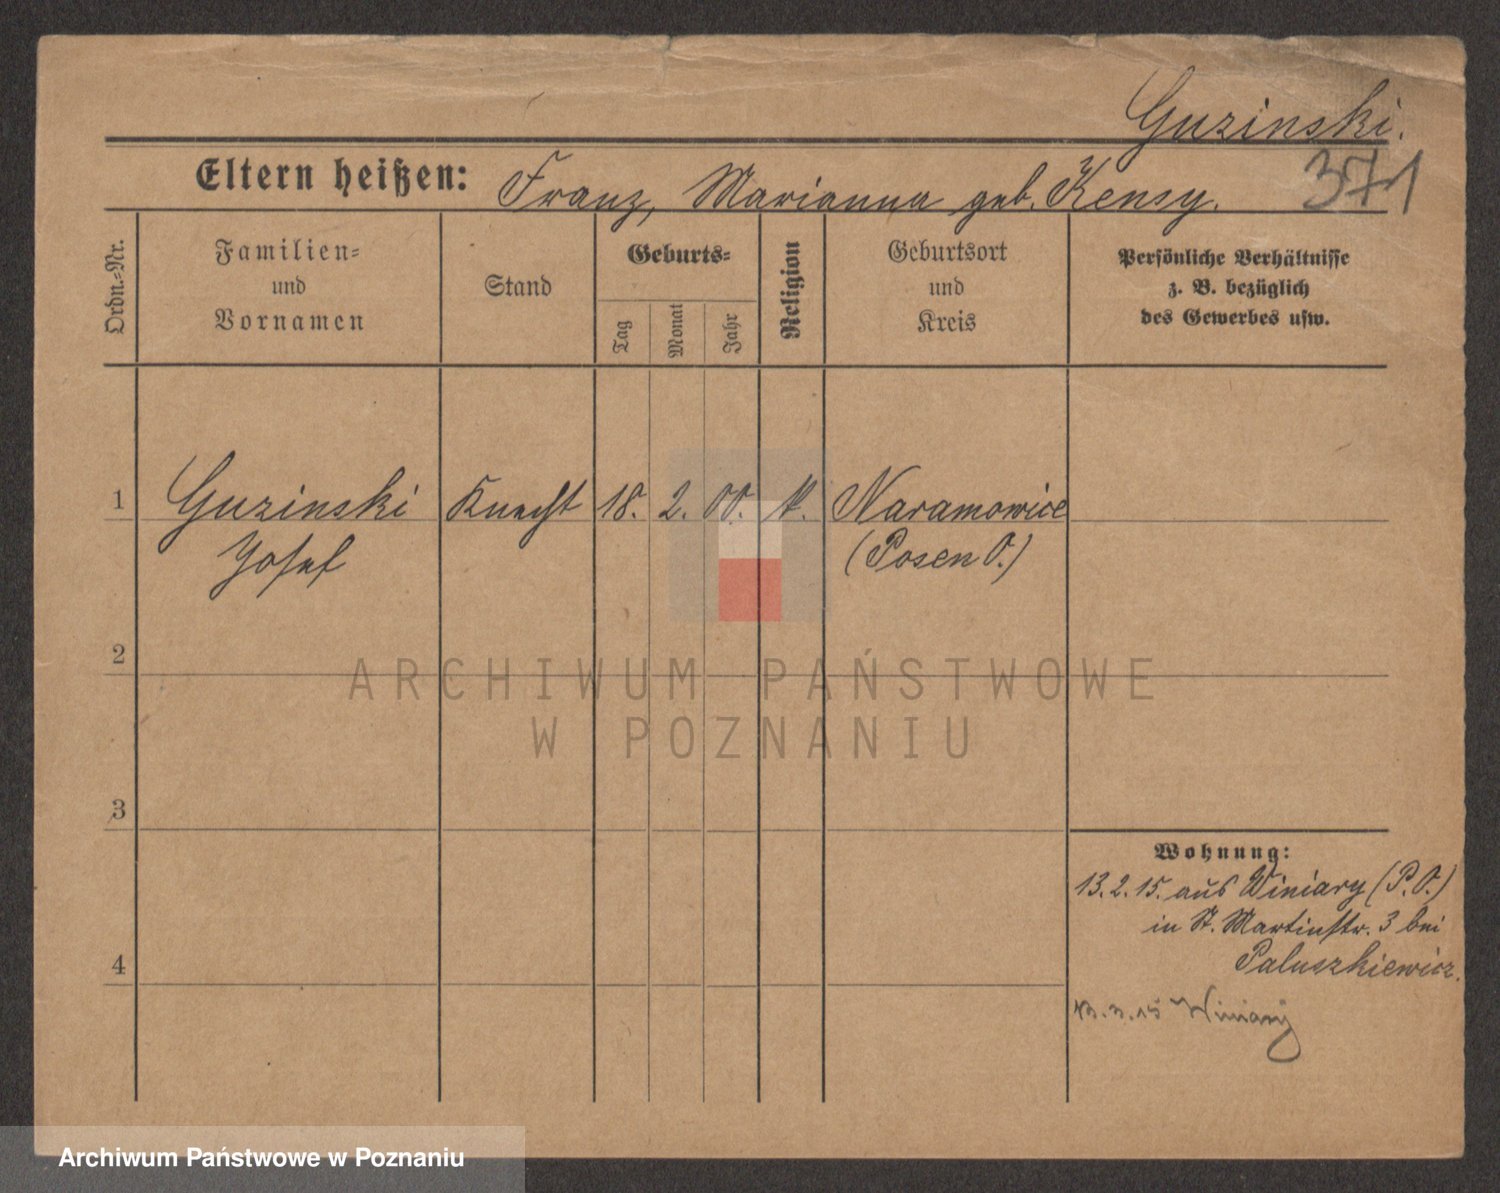 Guzinski.
Eltern heißen: Franz, Marianna geb. Kensy.
371
Ordn.-Nr.
Familien-
und
Vornamen
Stand
Geburts-
Tag
Monat
Jahr
Religion
Geburtsort
und
Kreis
Persönliche Verhältnisse
z. B. bezüglich
des Gewerbes usw.
1 Guzinski Knecht 18. 2. 00. k. Naramowice
Josef (Posen O.)
2
ARCHIWUM PAŃSTWOWE
W POZNANIU
3
Wohnung:
13.2.15. aus Winiary (P.O.)
in St. Martinstr. 3 bei
4 Paluszkiewicz.
15 Winiary
Archiwum Państwowe w Poznaniu